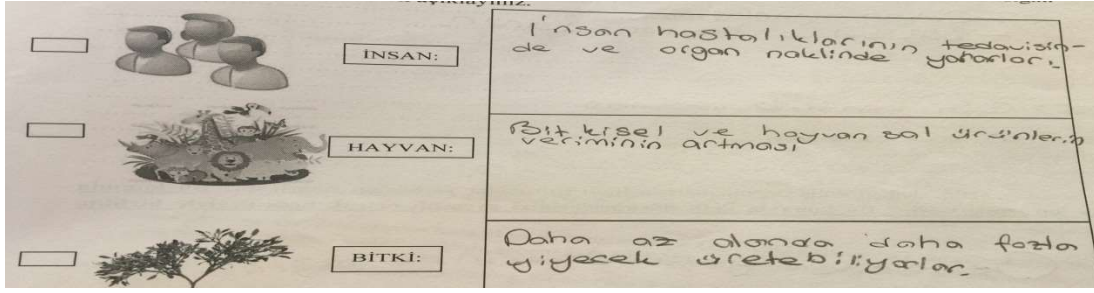 açıklayınız.
İNSAN:
İnsan hastalıklarının tedavisin-
de ve organ naklinde yararlar.
HAYVAN:
Bitkisel ve hayvan sal ürünlerin
veriminin artması
BİTKİ:
Daha az alanda daha fazla
yiyecek üretebiliyorlar.